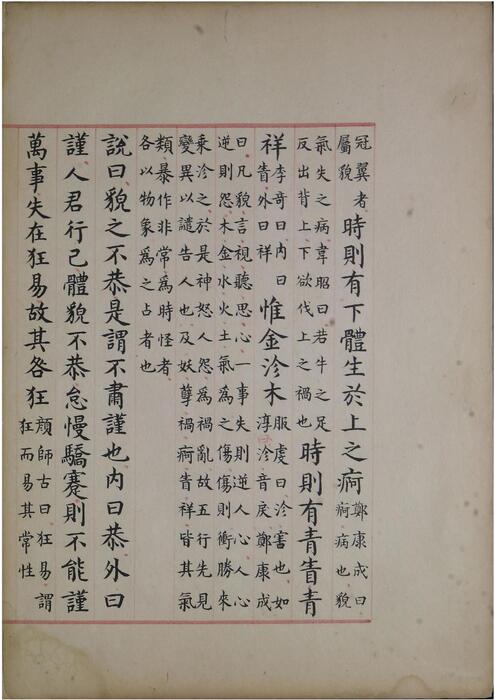 冠翼者
屬貌
時則有下體生於上之痾
鄭康成曰
痾病也貌
氣失之病韋昭曰若牛之足
反出背上下欲伐上之禍也
時則有青眚青
祥
李奇曰内曰
眚外曰祥
惟金沴木
服虔曰沴害也如
淳沴音戾鄭康成
曰凡貌言視聽思心一事失則逆人心人心
逆則怨木金水火土氣爲之傷傷則衝勝來
乘沴之於是神怒人怨爲禍亂故五行先見
變異以譴告人也及妖孽禍痾眚祥皆其氣
類暴作非常爲時怪者
各以物象爲之占者也
說曰貌之不恭是謂不肅謹也内曰恭外曰
謹人君行己體貌不恭怠慢驕蹇則不能謹
萬事失在狂易故其咎狂
顏師古曰狂易謂
狂而易其常性